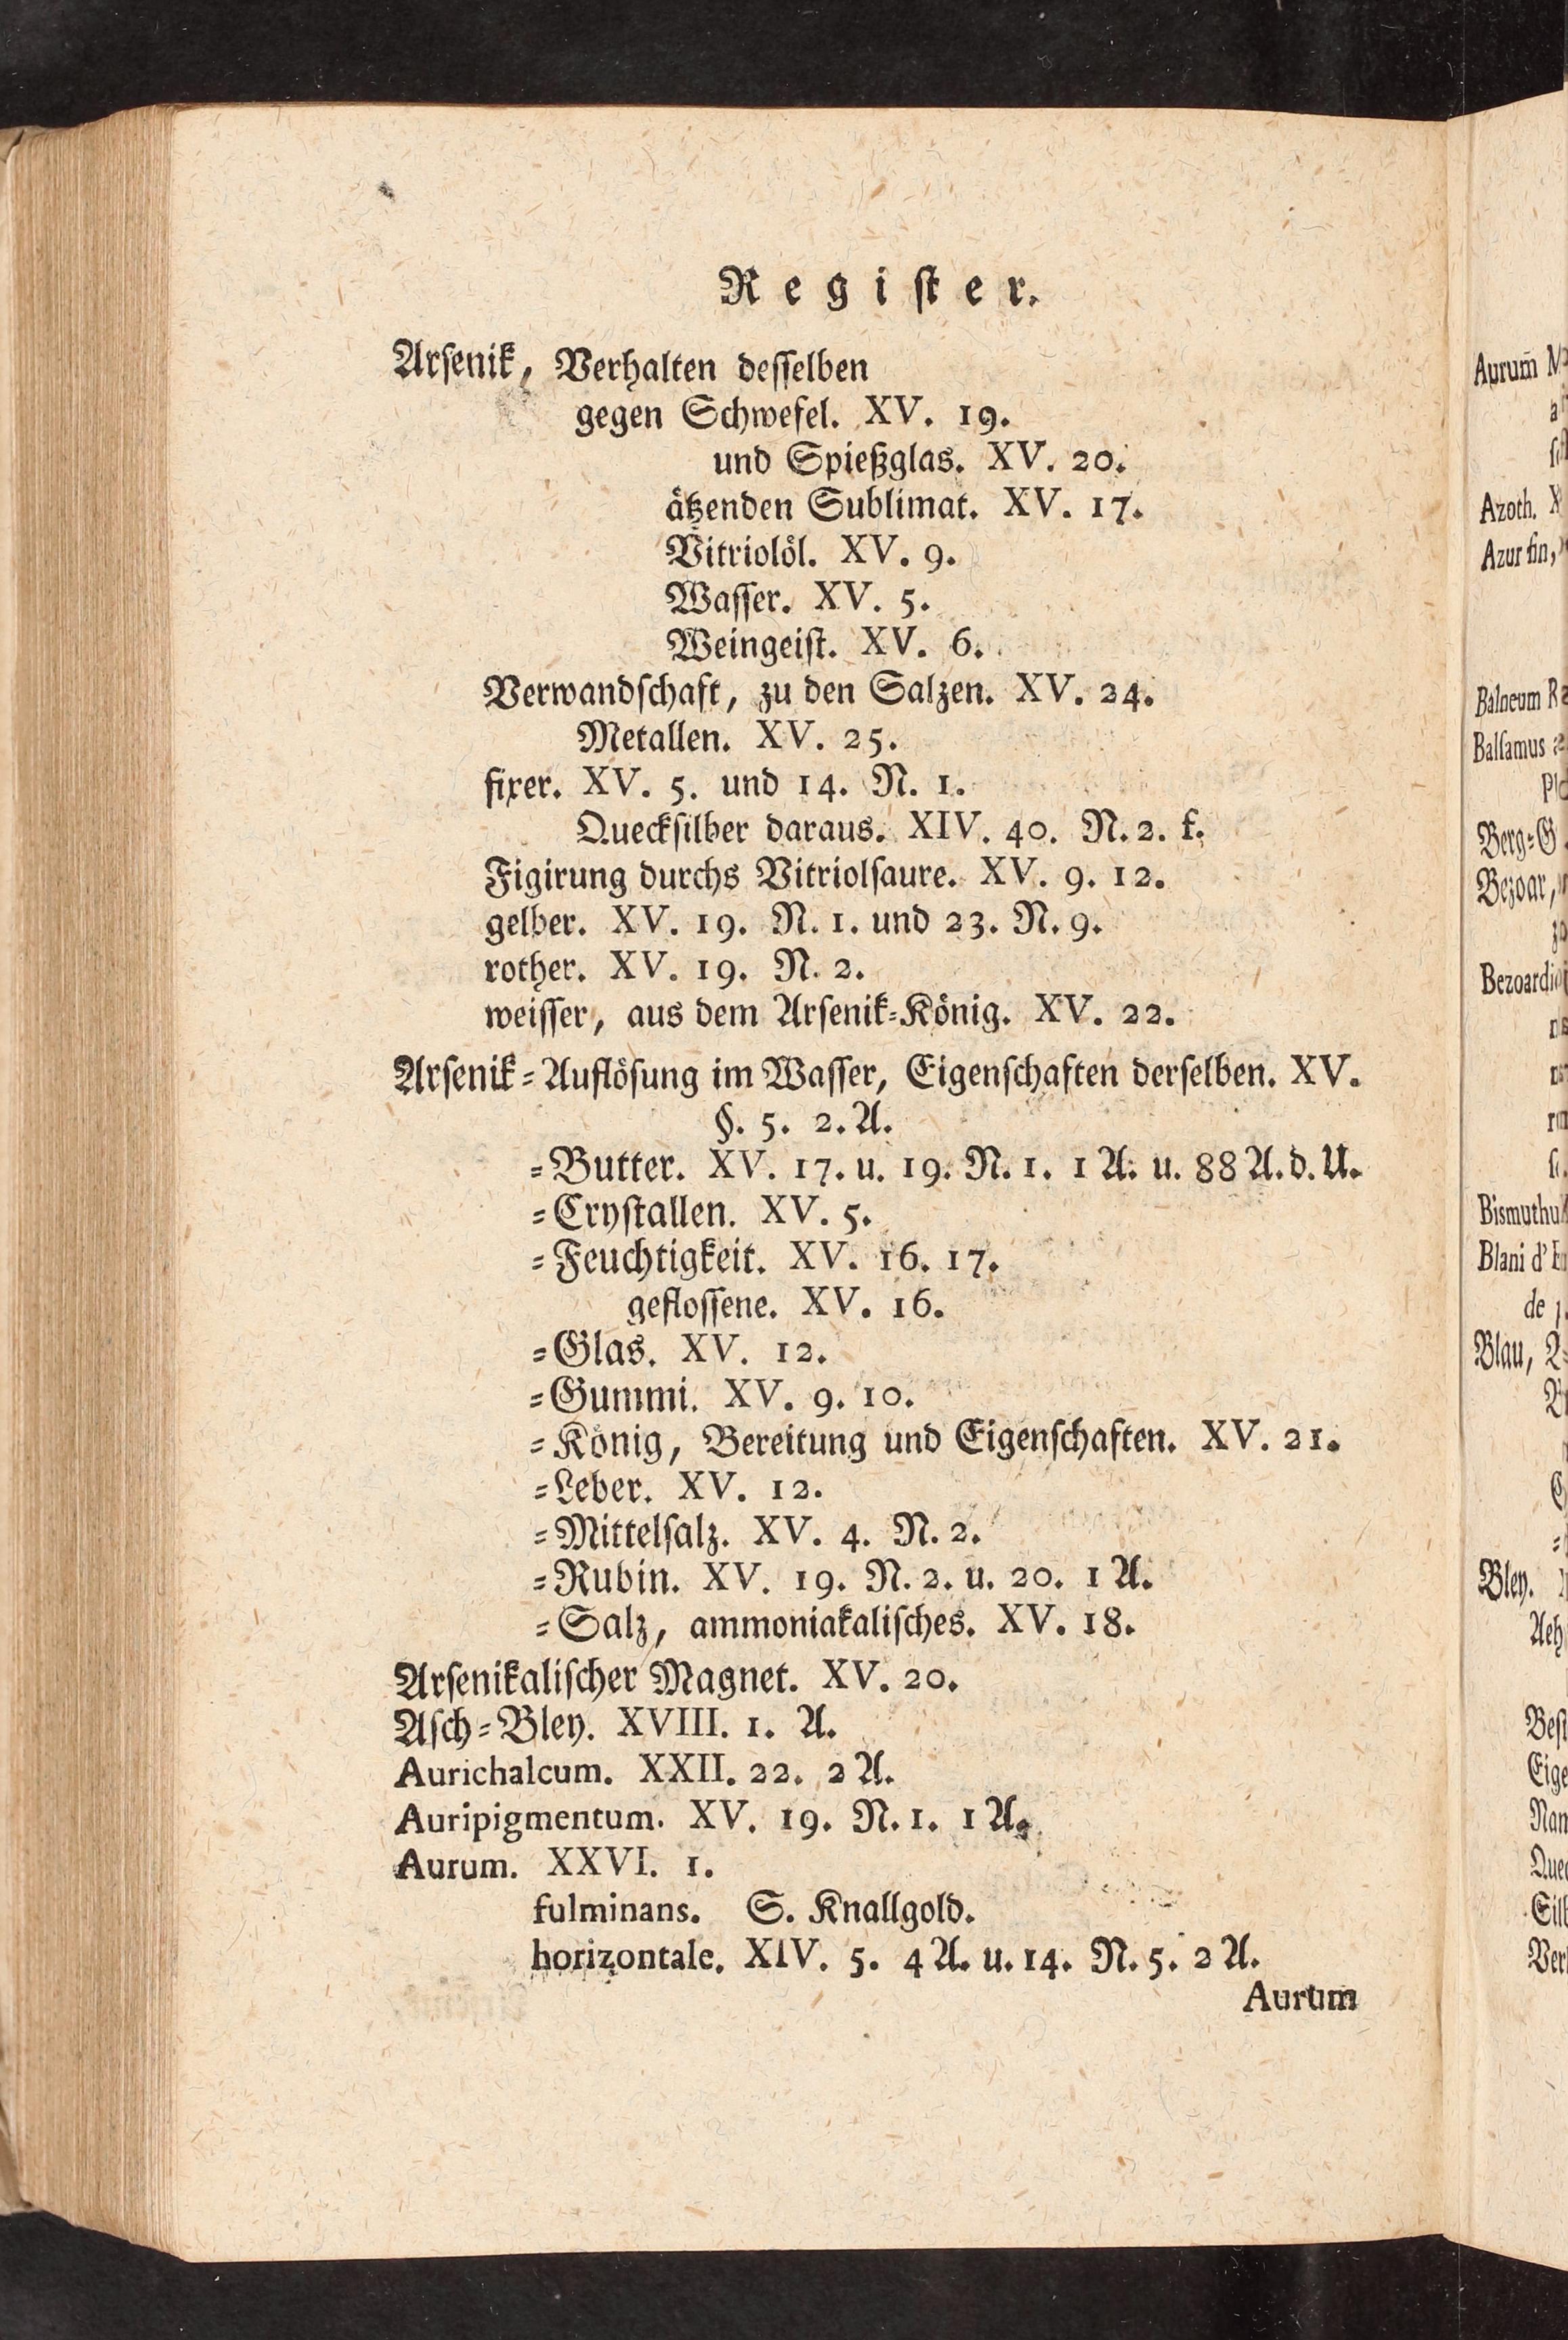 Regiſter.
Arſenik, Verhalten deſſelben
gegen Schwefel. XV. 19.
und Spießglas. XV. 20.
aͤtzenden Sublimat. XV. 17.
Vitrioloͤl. XV. 9.
Waſſer. XV. 5.
Weingeiſt. XV. 6.
Verwandſchaft, zu den Salzen. XV. 24.
Metallen. XV. 25.
fixer. XV. 5. und 14. N. 1.
Queckſilber daraus. XIV. 40. N. 2. f.
Figirung durchs Vitriolſaure. XV. 9. 12.
gelber. XV. 19. N. 1. und 23. N. 9.
rother. XV. 19. N. 2.
weiſſer, aus dem Arſenik⸗Koͤnig. XV. 22.
Arſenik⸗Aufloͤſung im Waſſer, Eigenſchaften derſelben. XV.
§. 5. 2. A.
⸗Butter. XV. 17. u. 19. N. 1. 1 A. u. 88 A. d. U.
⸗Cryſtallen. XV. 5.
⸗Feuchtigkeit. XV. 16. 17.
gefloſſene. XV. 16.
⸗Glas. XV. 12.
⸗Gummi. XV. 9. 10.
⸗Koͤnig, Bereitung und Eigenſchaften. XV. 21.
⸗Leber. XV. 12.
⸗Mittelſalz. XV. 4. N. 2.
⸗Rubin. XV. 19. N. 2. u. 20. 1 A.
⸗Salz, ammoniakaliſches. XV. 18.
Arſenikaliſcher Magnet. XV. 20.
Aſch⸗Bley. XVIII. 1. A.
Aurichalcum. XXII. 22. 2 A.
Auripigmentum. XV. 19. N. 1. 1 A.
Aurum. XXVI. 1.
fulminans. S. Knallgold.
horizontale. XIV. 5. 4 A. u. 14. N. 5. 2 A.
Aurum
Aurum̃
Azoth.
Azur fin,
Balneum
Balſamus
Berg⸗
Bezoar,
Blani d'
de
Blau,
Bley.